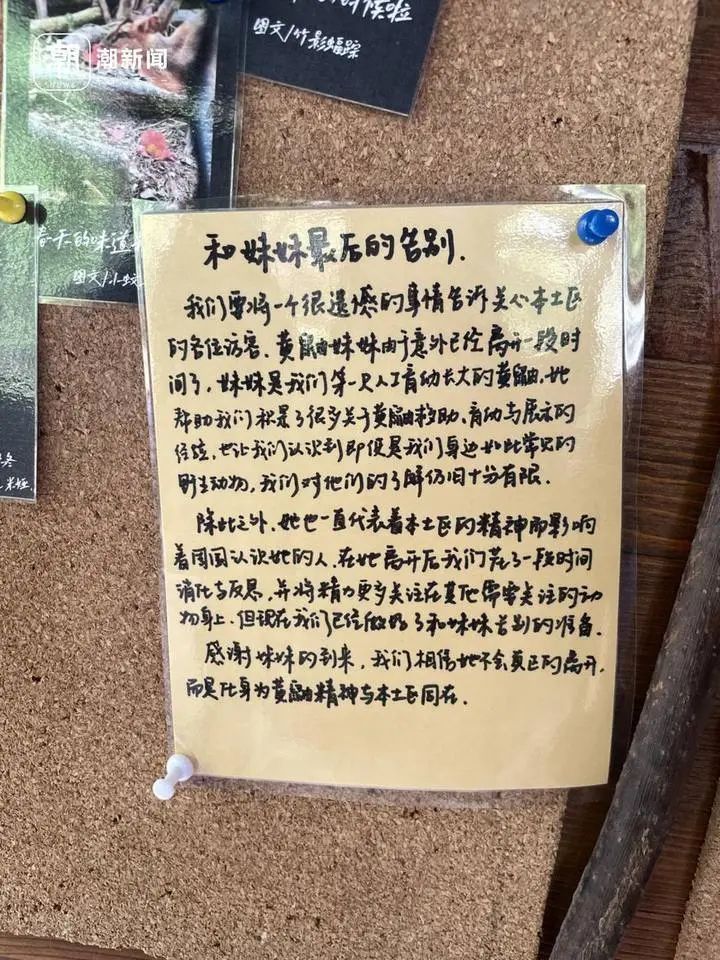 潮新闻
图文/竹影蝠踪
春天的味道
图文/小蚊
和妹妹最后的告别.
我们要将一个很遗憾的事情告诉关心本土区
的各位访客, 黄鼬妹妹由于意外已经离开一段时
间了, 妹妹是我们第一只人工育幼长大的黄鼬, 她
帮助我们积累了很多关于黄鼬救助、育幼与展示的
经验, 也让我们认识到即便是我们身边如此常见的
野生动物, 我们对他们的了解仍旧十分有限.
除此之外, 她也一直代表着本土区的精神而影响
着围围认识她的人, 在她离开后我们花了一段时间
消化与反思, 并将精力更多关注在其他需要关注的动
物身上, 但现在我们已经做好了和妹妹告别的准备.
感谢妹妹的到来, 我们相信她不会真正的离开,
而是化身为黄鼬精神与本土区同在.